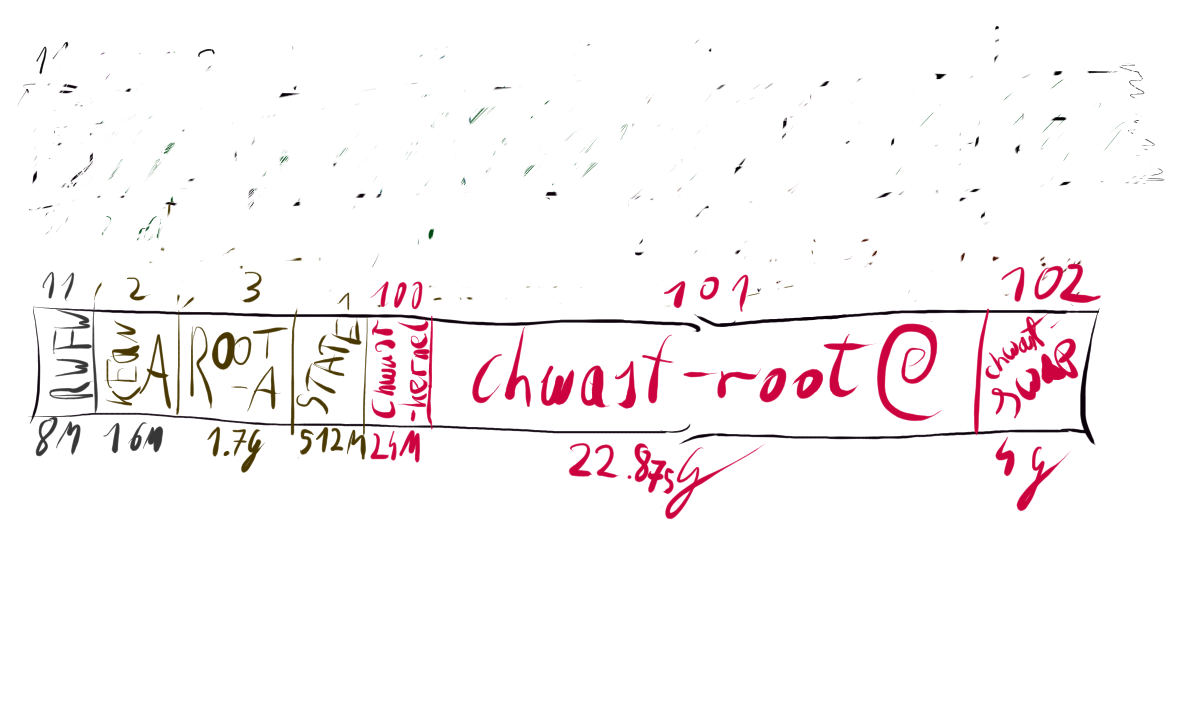 11 2 3 1 100 101 102
RWFW KERN A ROOT -A STATE chwast -kernel chwast-root@ chwast- swap
8M 16M 1.7g 512M 24M 22.875g 4g